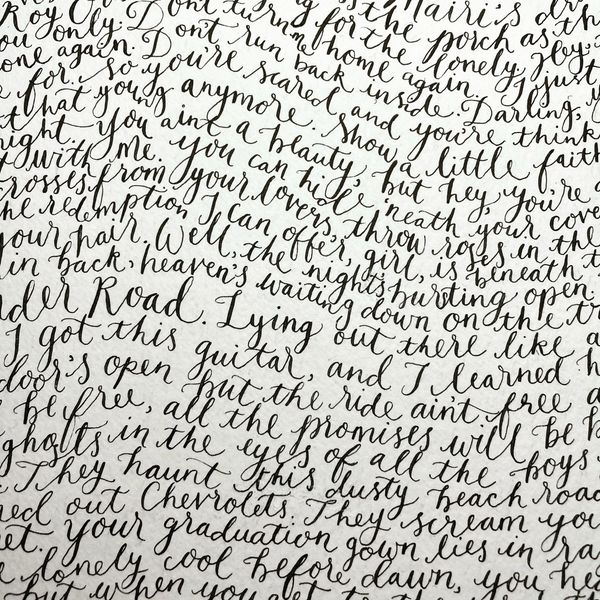 Mairi's dr
the porch as th
Roy for the lonely. Hey,
ou only. Don't turn me home again. I just
one again. Don't run back inside. Darling, y
e for. So you're scared and you're think
t that young anymore. Show a little faith
ight You aint a beauty, but hey, you're a
t with me. You can hide 'neath your cove
rosses from your lovers, throw roses in the
he redemption I can offer, girl, is beneath t
your hair. Well, the nights bursting open.
in back, heaven's waiting down on the tr
nder Road. Lying out there like a
I got this guitar, and I learned h
door's open but the ride ain't free a
be free, all the promises will be b
ghosts in the eyes of all the boys
They haunt this dusty beach road
ned out Chevrolets. They scream you
et. Your graduation gown lies in ra
e lonely cool before dawn, you hea
but when you get to the